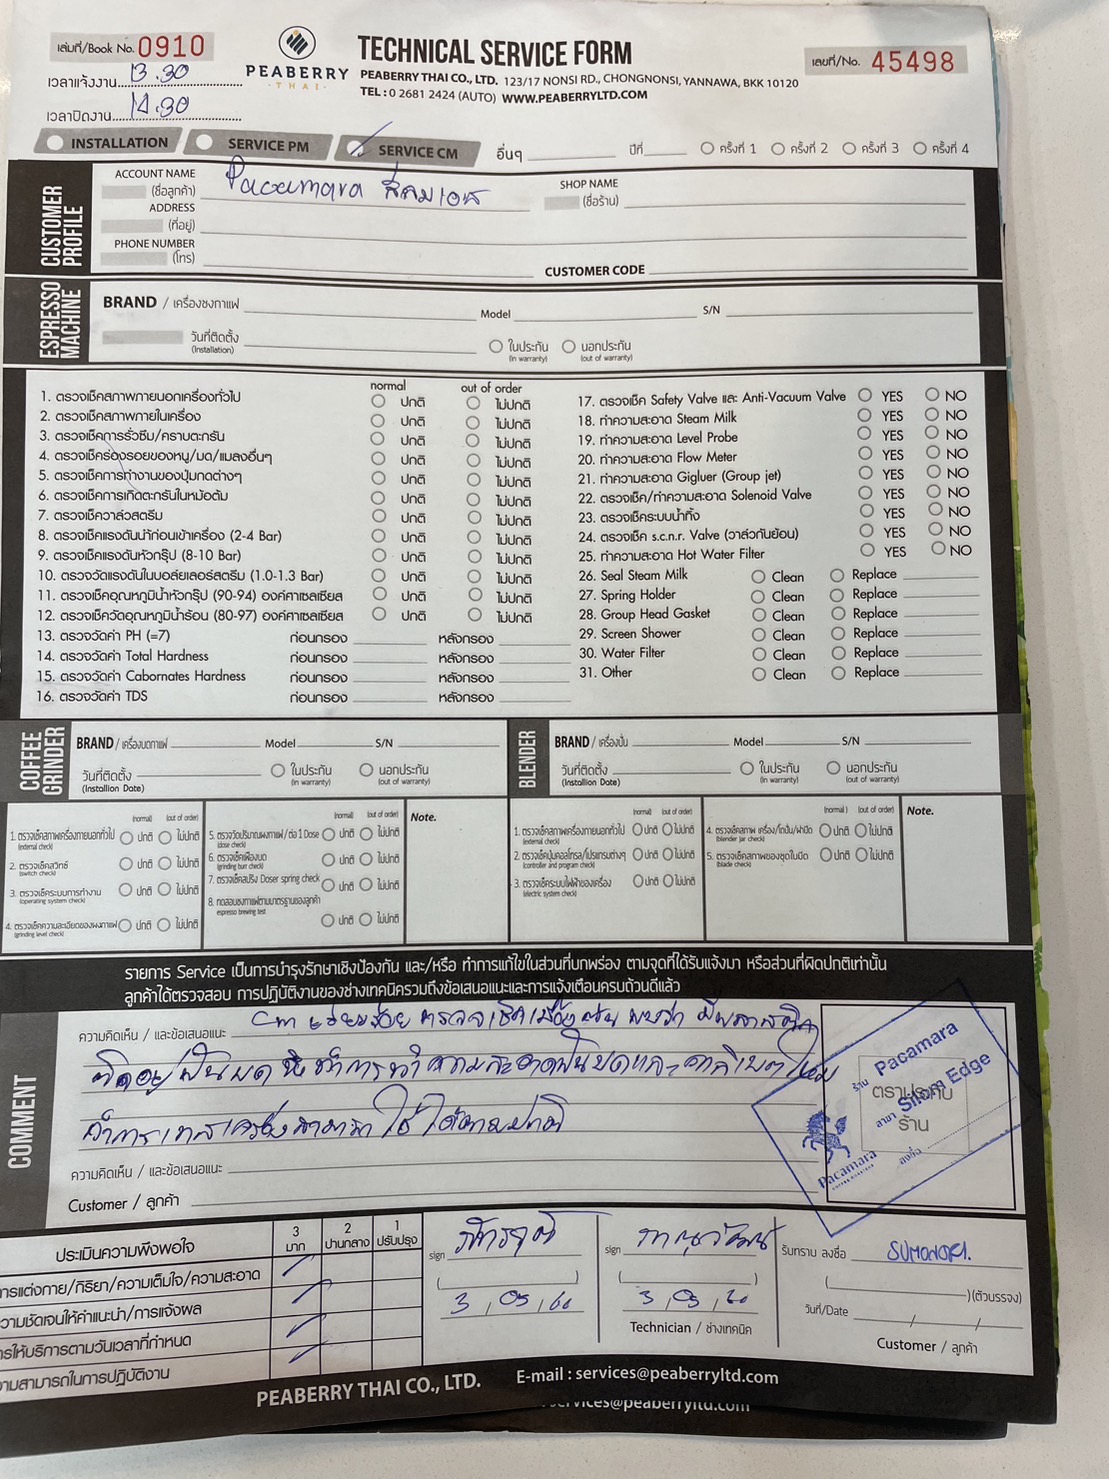 เล่มที่/Book No. 0910
PEABERRY
THAI
TECHNICAL SERVICE FORM
PEABERRY THAI CO., LTD. 123/17 NONSI RD., CHONGNONSI, YANNAWA, BKK 10120
TEL : 0 2681 2424 (AUTO) WWW.PEABERRYLTD.COM
เลขที่/No. 45498
เวลาแจ้งงาน 13.30
เวลาปิดงาน 14.30
INSTALLATION SERVICE PM SERVICE CM อื่นๆ ปีที่ ครั้งที่ 1 ครั้งที่ 2 ครั้งที่ 3 ครั้งที่ 4
CUSTOMER PROFILE
ACCOUNT NAME Pacamara สีลมเอจ SHOP NAME
(ชื่อลูกค้า) (ชื่อร้าน)
ADDRESS
(ที่อยู่)
PHONE NUMBER
(โทร) CUSTOMER CODE
ESPRESSO MACHINE
BRAND / เครื่องชงกาแฟ Model S/N
วันที่ติดตั้ง ในประกัน นอกประกัน
(Installation) (in warranty) (out of warranty)
normal out of order
1. ตรวจเช็คสภาพภายนอกเครื่องทั่วไป ปกติ ไม่ปกติ
2. ตรวจเช็คสภาพภายในเครื่อง ปกติ ไม่ปกติ
3. ตรวจเช็คการรั่วซึม/คราบตะกรัน ปกติ ไม่ปกติ
4. ตรวจเช็คร่องรอยของหนู/มด/แมลงอื่นๆ ปกติ ไม่ปกติ
5. ตรวจเช็คการทำงานของปุ่มกดต่างๆ ปกติ ไม่ปกติ
6. ตรวจเช็คการเกิดตะกรันในหม้อต้ม ปกติ ไม่ปกติ
7. ตรวจเช็ควาล์วสตรีม ปกติ ไม่ปกติ
8. ตรวจเช็คแรงดันน้ำก่อนเข้าเครื่อง (2-4 Bar) ปกติ ไม่ปกติ
9. ตรวจเช็คแรงดันหัวกรุ๊ป (8-10 Bar) ปกติ ไม่ปกติ
10. ตรวจวัดแรงดันในบอล์ยเลอร์สตรีม (1.0-1.3 Bar) ปกติ ไม่ปกติ
11. ตรวจเช็คอุณหภูมิน้ำหัวกรุ๊ป (90-94) องค์ศาเซลเซียส ปกติ ไม่ปกติ
12. ตรวจเช็ควัดอุณหภูมิน้ำร้อน (80-97) องค์ศาเซลเซียส ปกติ ไม่ปกติ
13. ตรวจวัดค่า PH (=7) ก่อนกรอง หลังกรอง
14. ตรวจวัดค่า Total Hardness ก่อนกรอง หลังกรอง
15. ตรวจวัดค่า Cabornates Hardness ก่อนกรอง หลังกรอง
16. ตรวจวัดค่า TDS ก่อนกรอง หลังกรอง
17. ตรวจเช็ค Safety Valve และ Anti-Vacuum Valve YES NO
18. ทำความสะอาด Steam Milk YES NO
19. ทำความสะอาด Level Probe YES NO
20. ทำความสะอาด Flow Meter YES NO
21. ทำความสะอาด Gigluer (Group jet) YES NO
22. ตรวจเช็ค/ทำความสะอาด Solenoid Valve YES NO
23. ตรวจเช็คระบบน้ำทิ้ง YES NO
24. ตรวจเช็ค s.c.n.r. Valve (วาล์วกันย้อน) YES NO
25. ทำความสะอาด Hot Water Filter YES NO
26. Seal Steam Milk Clean Replace
27. Spring Holder Clean Replace
28. Group Head Gasket Clean Replace
29. Screen Shower Clean Replace
30. Water Filter Clean Replace
31. Other Clean Replace
COFFEE GRINDER
BRAND / เครื่องบดกาแฟ Model S/N
วันที่ติดตั้ง ในประกัน นอกประกัน
(Installion Date) (in warranty) (out of warranty)
BLENDER
BRAND / เครื่องปั่น Model S/N
วันที่ติดตั้ง ในประกัน นอกประกัน
(Installion Date) (in warranty) (out of warranty)
(normal) (out of order)
1. ตรวจเช็คสภาพเครื่องภายนอกทั่วไป ปกติ ไม่ปกติ
(external check)
2. ตรวจเช็คสวิทซ์ ปกติ ไม่ปกติ
(switch check)
3. ตรวจเช็คระบบการทำงาน ปกติ ไม่ปกติ
(operating system check)
4. ตรวจเช็คความละเอียดของผงกาแฟ ปกติ ไม่ปกติ
(grinding level check)
(normal) (out of order)
5. ตรวจวัดปริมาณผงกาแฟ / ต่อ 1 Dose ปกติ ไม่ปกติ
(dose check)
6. ตรวจเช็คเฟืองบด ปกติ ไม่ปกติ
(grinding burr check)
7. ตรวจเช็คสปริง Doser spring check ปกติ ไม่ปกติ
8. ทดสอบชงกาแฟตามมาตรฐานของลูกค้า ปกติ ไม่ปกติ
espresso brewing test
Note.
(normal) (out of order)
1. ตรวจเช็คสภาพเครื่องภายนอกทั่วไป ปกติ ไม่ปกติ
(external check)
2. ตรวจเช็คปุ่มคอลโทรล/โปรแกรมต่างๆ ปกติ ไม่ปกติ
(controller and program check)
3. ตรวจเช็คระบบไฟฟ้าของเครื่อง ปกติ ไม่ปกติ
(electric system check)
(normal) (out of order)
4. ตรวจเช็คสภาพ เครื่อง/โถปั่น/ฝาปิด ปกติ ไม่ปกติ
(blender jar check)
5. ตรวจเช็คสภาพของชุดใบมีด ปกติ ไม่ปกติ
(blade check)
Note.
รายการ Service เป็นการบำรุงรักษาเชิงป้องกัน และ/หรือ ทำการแก้ไขในส่วนที่บกพร่อง ตามจุดที่ได้รับแจ้งมา หรือส่วนที่ผิดปกติเท่านั้น
ลูกค้าได้ตรวจสอบ การปฏิบัติงานของช่างเทคนิครวมถึงข้อเสนอแนะและการแจ้งเตือนครบถ้วนดีแล้ว
COMMENT
ความคิดเห็น / และข้อเสนอแนะ Cm เรียบร้อย ตรวจเช็คเบื้องต้น พบว่า มีพลาสติก
ติดอยู่ฟันบด จึงทำการทำความสะอาดฟันบดและคาลิเบตใหม่
ทำการเทสเครื่องสามารถใช้ได้ตามปกติ
ความคิดเห็น / และข้อเสนอแนะ
Customer / ลูกค้า
ตราประทับ
ร้าน
ร้าน Pacamara
สาขา Silom Edge
ลงชื่อ
Pacamara
ประเมินความพึงพอใจ 3 มาก 2 ปานกลาง 1 ปรับปรุง
การแต่งกาย/กิริยา/ความเต็มใจ/ความสะอาด
ความชัดเจนให้คำแนะนำ/การแจ้งผล
การให้บริการตามวันเวลาที่กำหนด
ความสามารถในการปฏิบัติงาน
sign
3 / 05 / 66
sign
3 / 05 / 66
Technician / ช่างเทคนิค
รับทราบ ลงชื่อ
(ตัวบรรจง)
วันที่/Date
Customer / ลูกค้า
PEABERRY THAI CO., LTD. E-mail : services@peaberryltd.com
services@peaberryltd.com